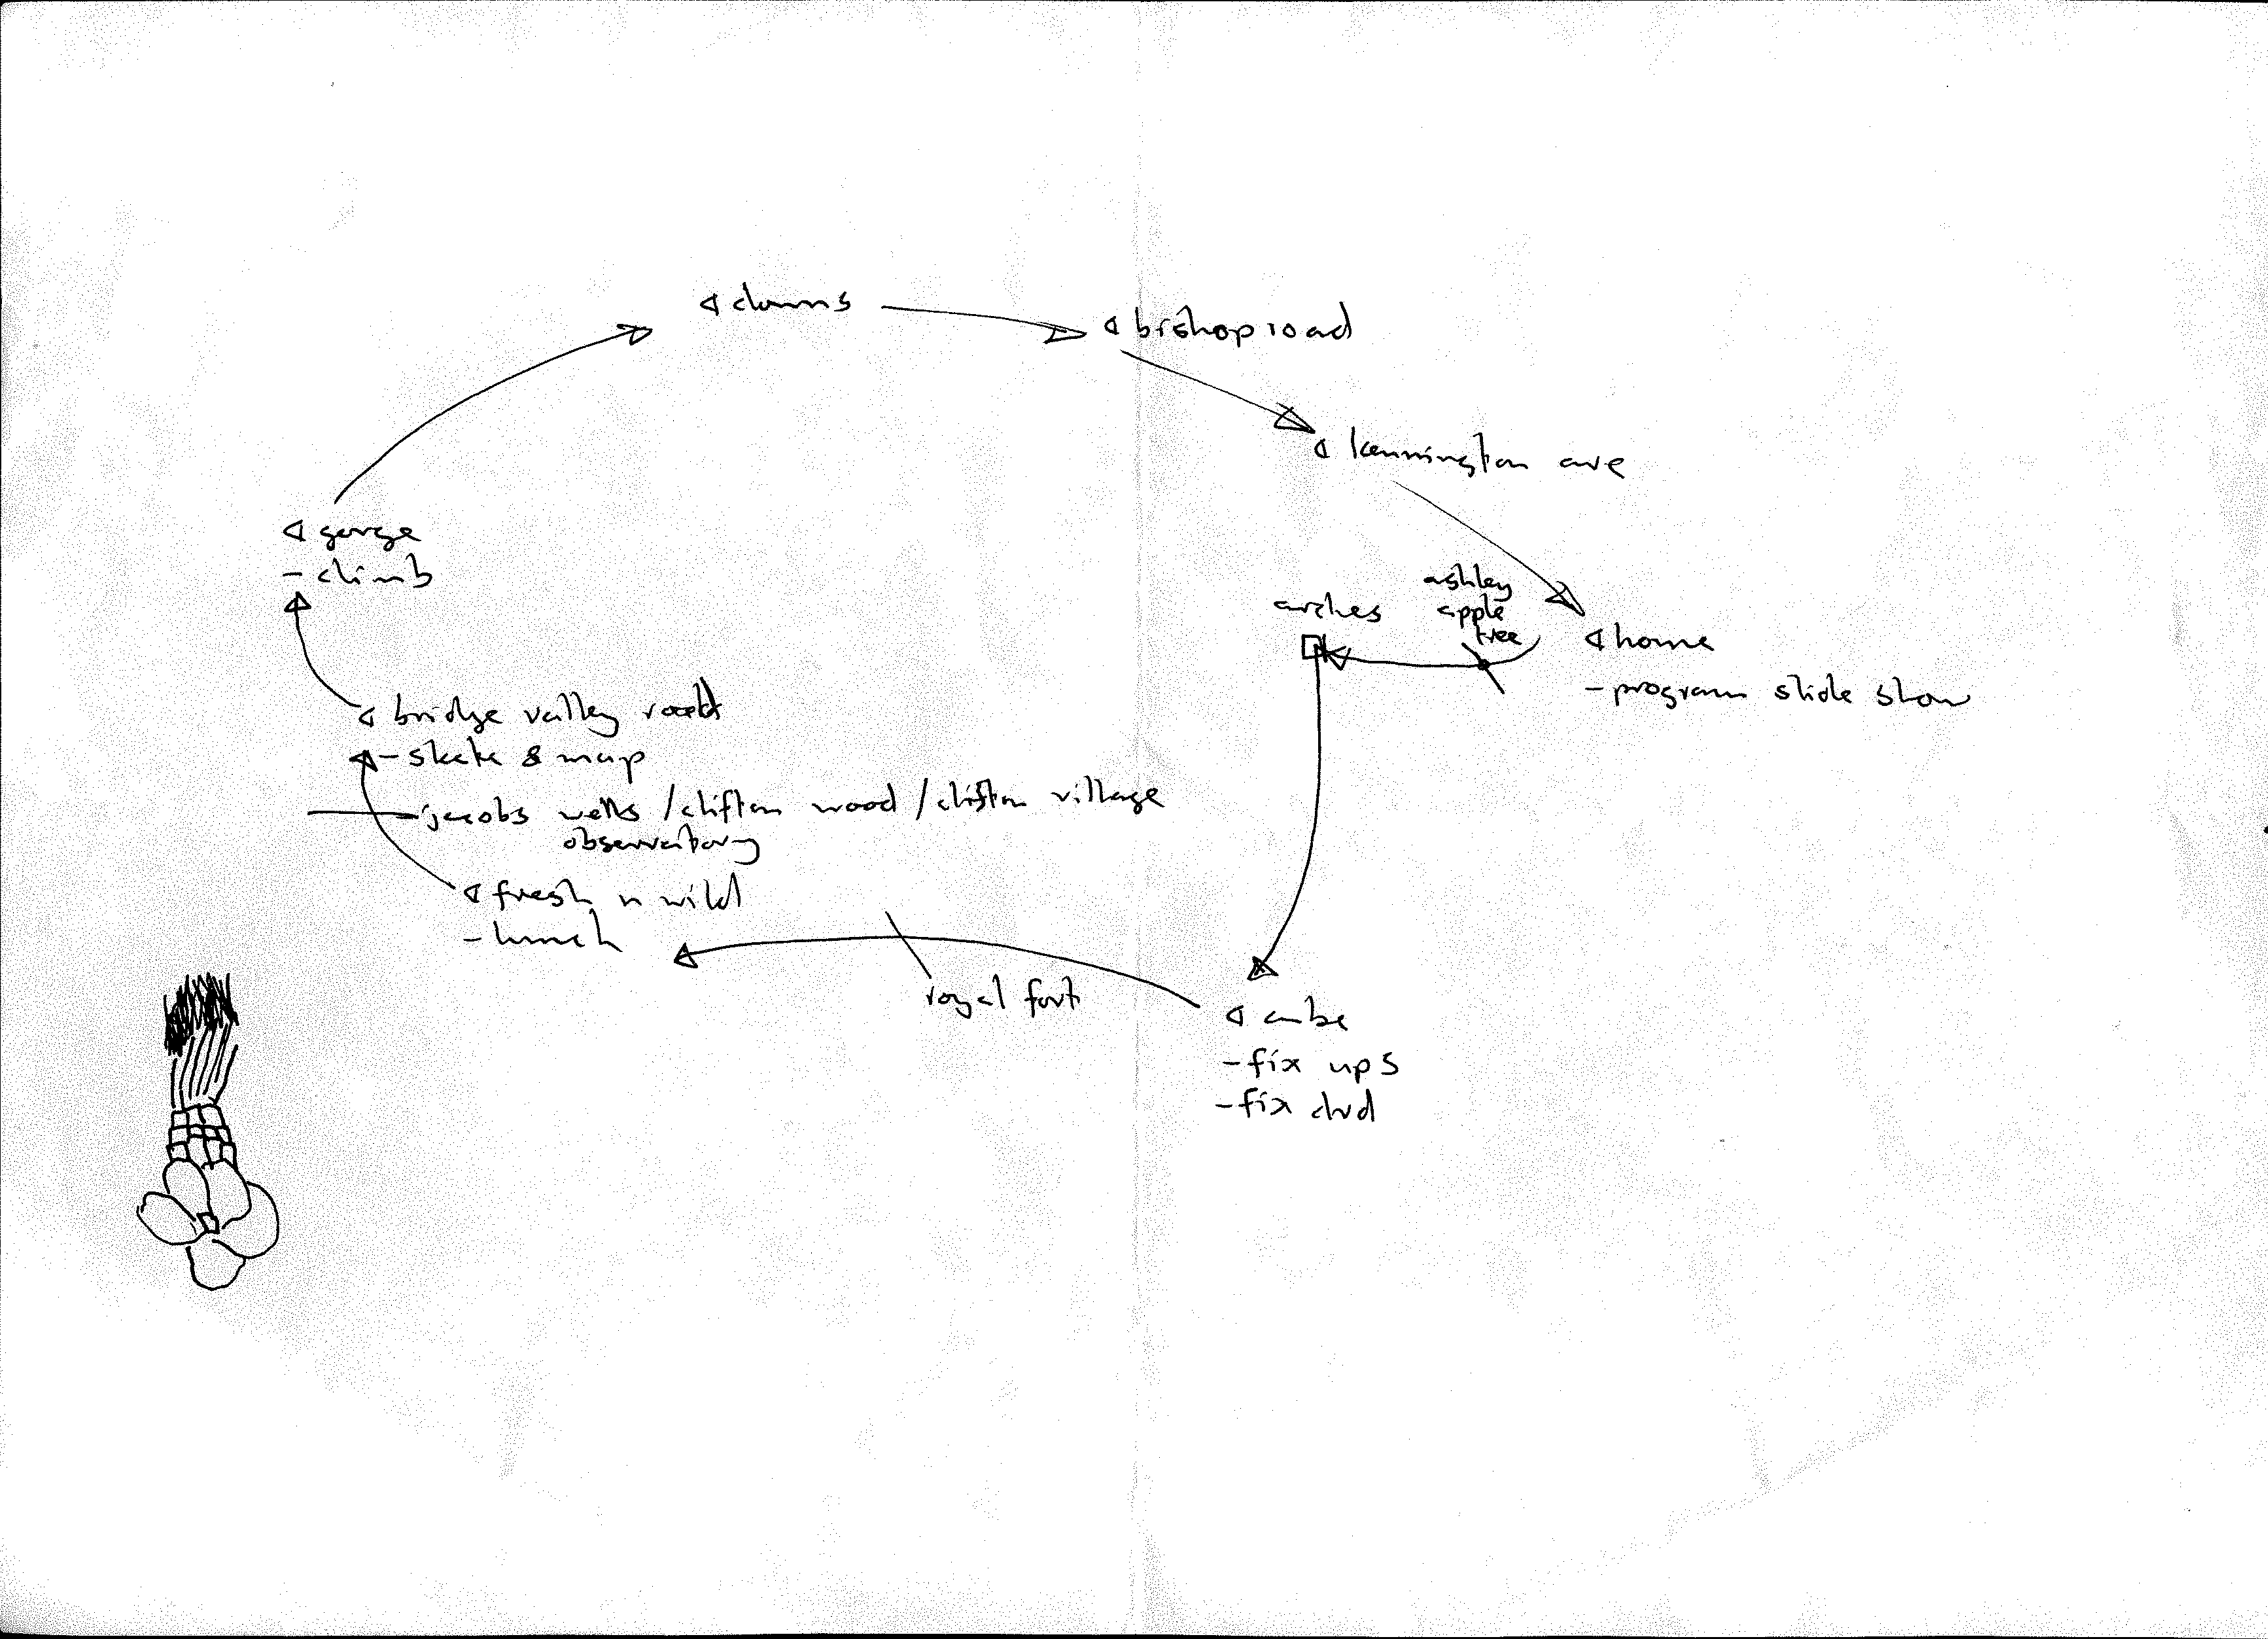 downs
bishop road
kennington ave
gorge
- climb
ashley
apple
tree
arches
home
- program slide show
bridge valley road
- skate & map
jacobs wells / clifton wood / clifton village
observatory
fresh n wild
- lunch
royal fort
cube
- fix ups
- fix dvd